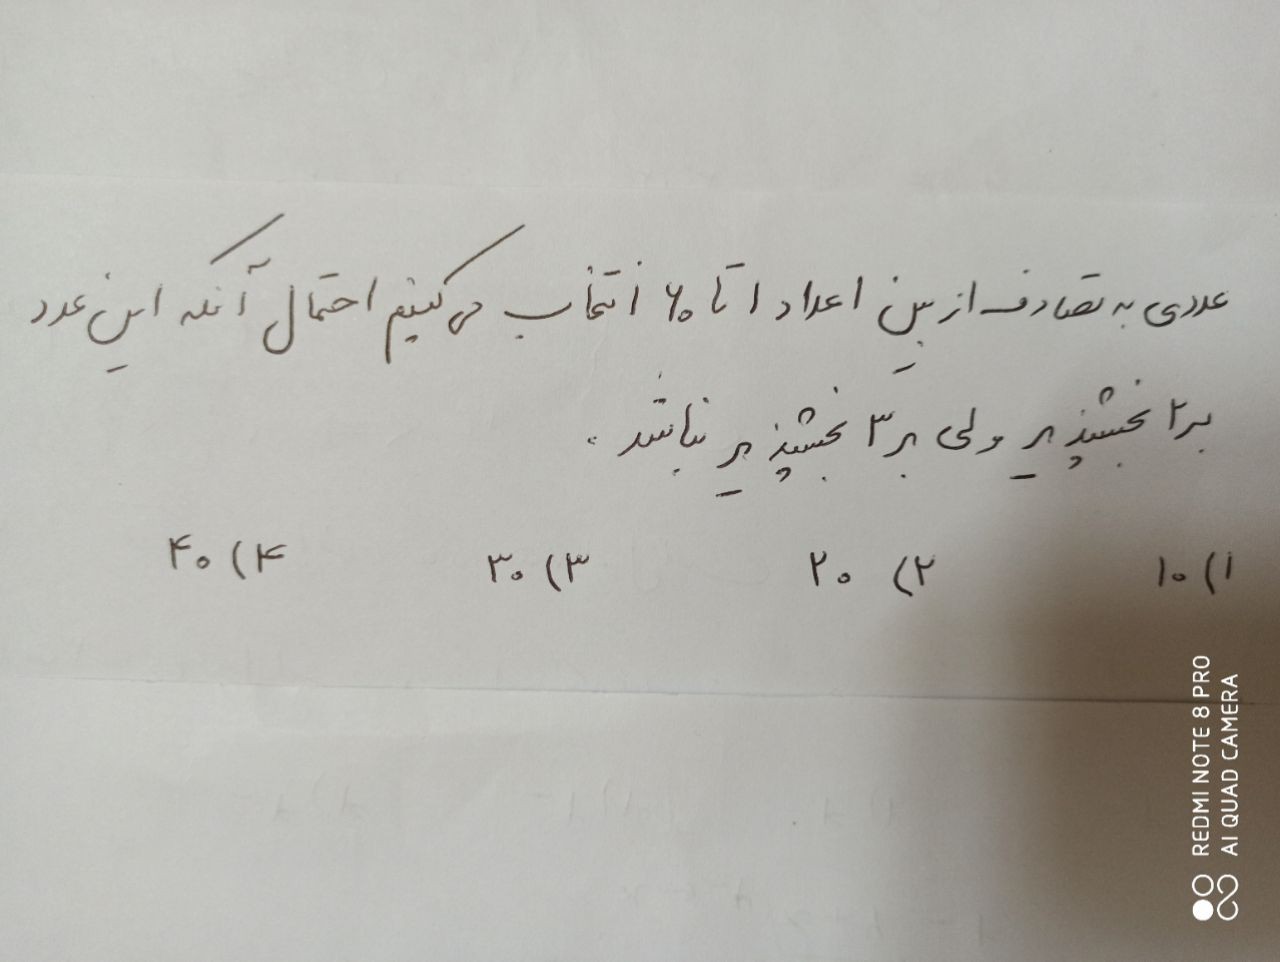 عددی به تصادف از بین اعداد ۱ تا ۶۰ انتخاب می کنیم احتمال آنکه این عدد
بر ۲ بخشپذیر ولی بر ۳ بخشپذیر نباشد .
۱) ۱۰ ۲) ۲۰ ۳) ۳۰ ۴) ۴۰
REDMI NOTE 8 PRO
AI QUAD CAMERA